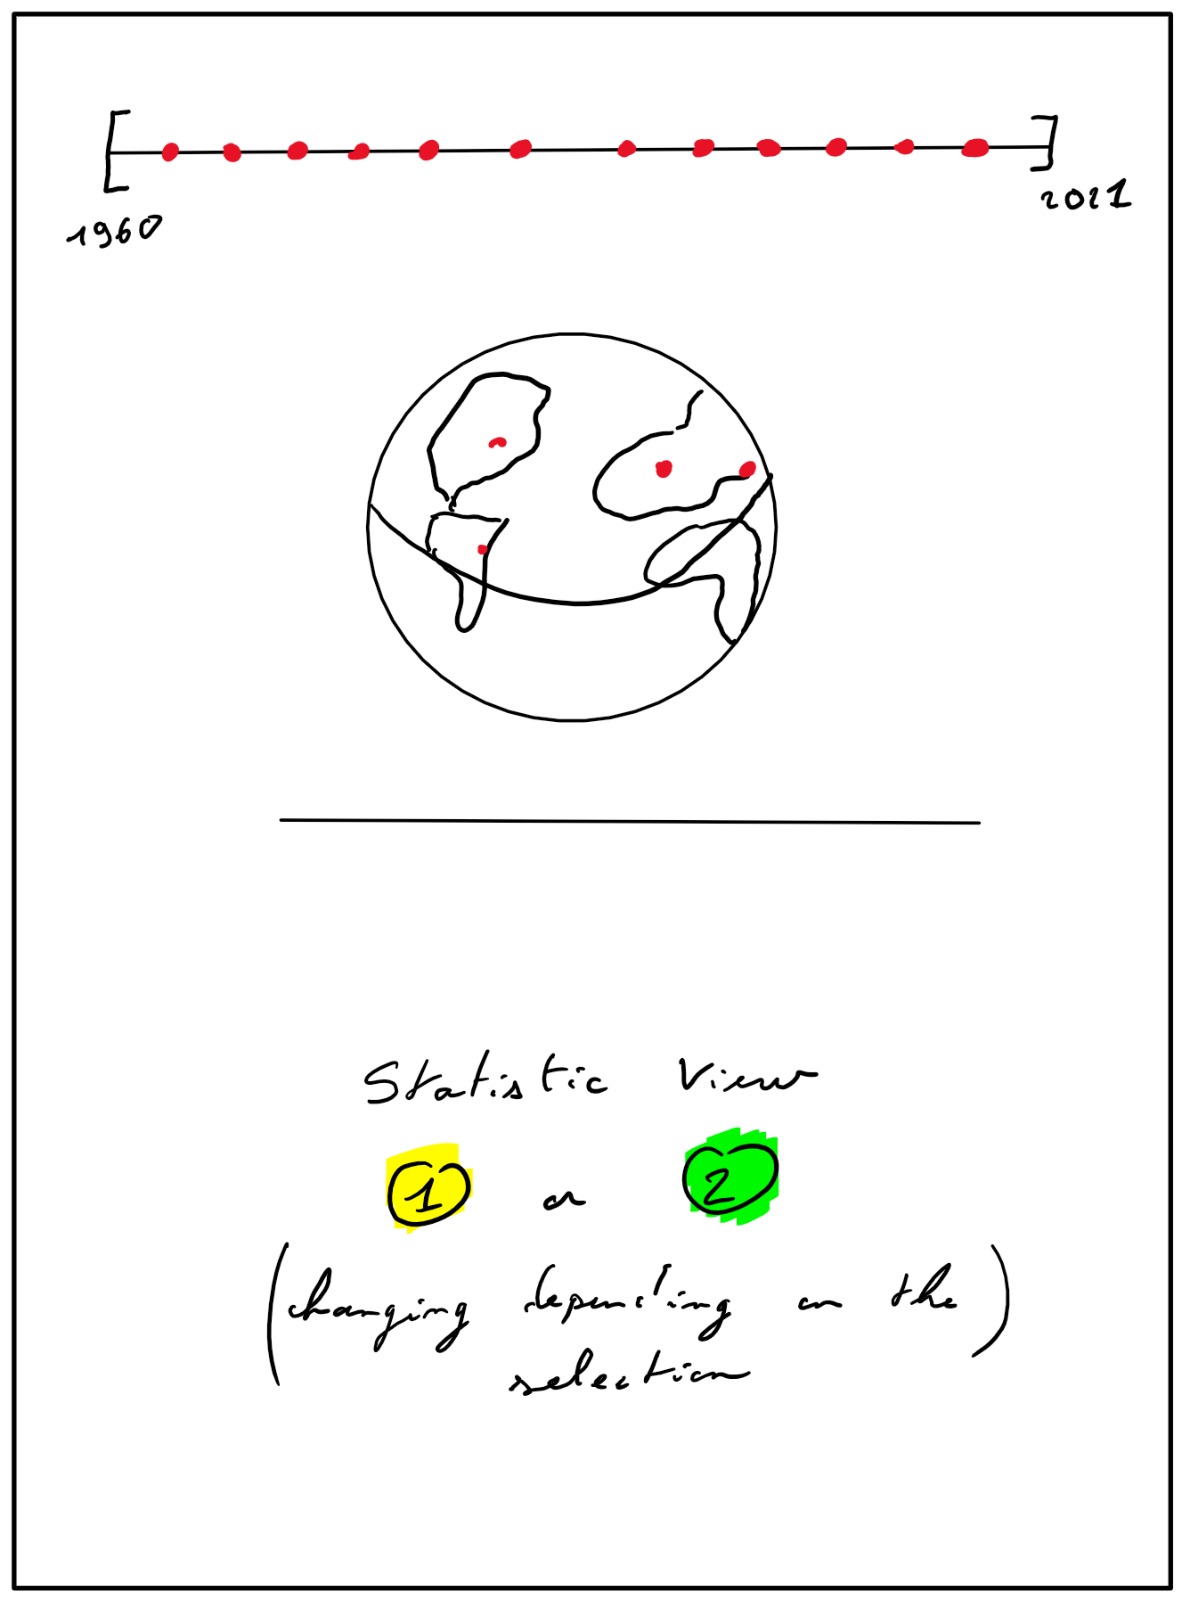 1960
2021
Statistic View
1 or 2
(changing depending on the)
selection